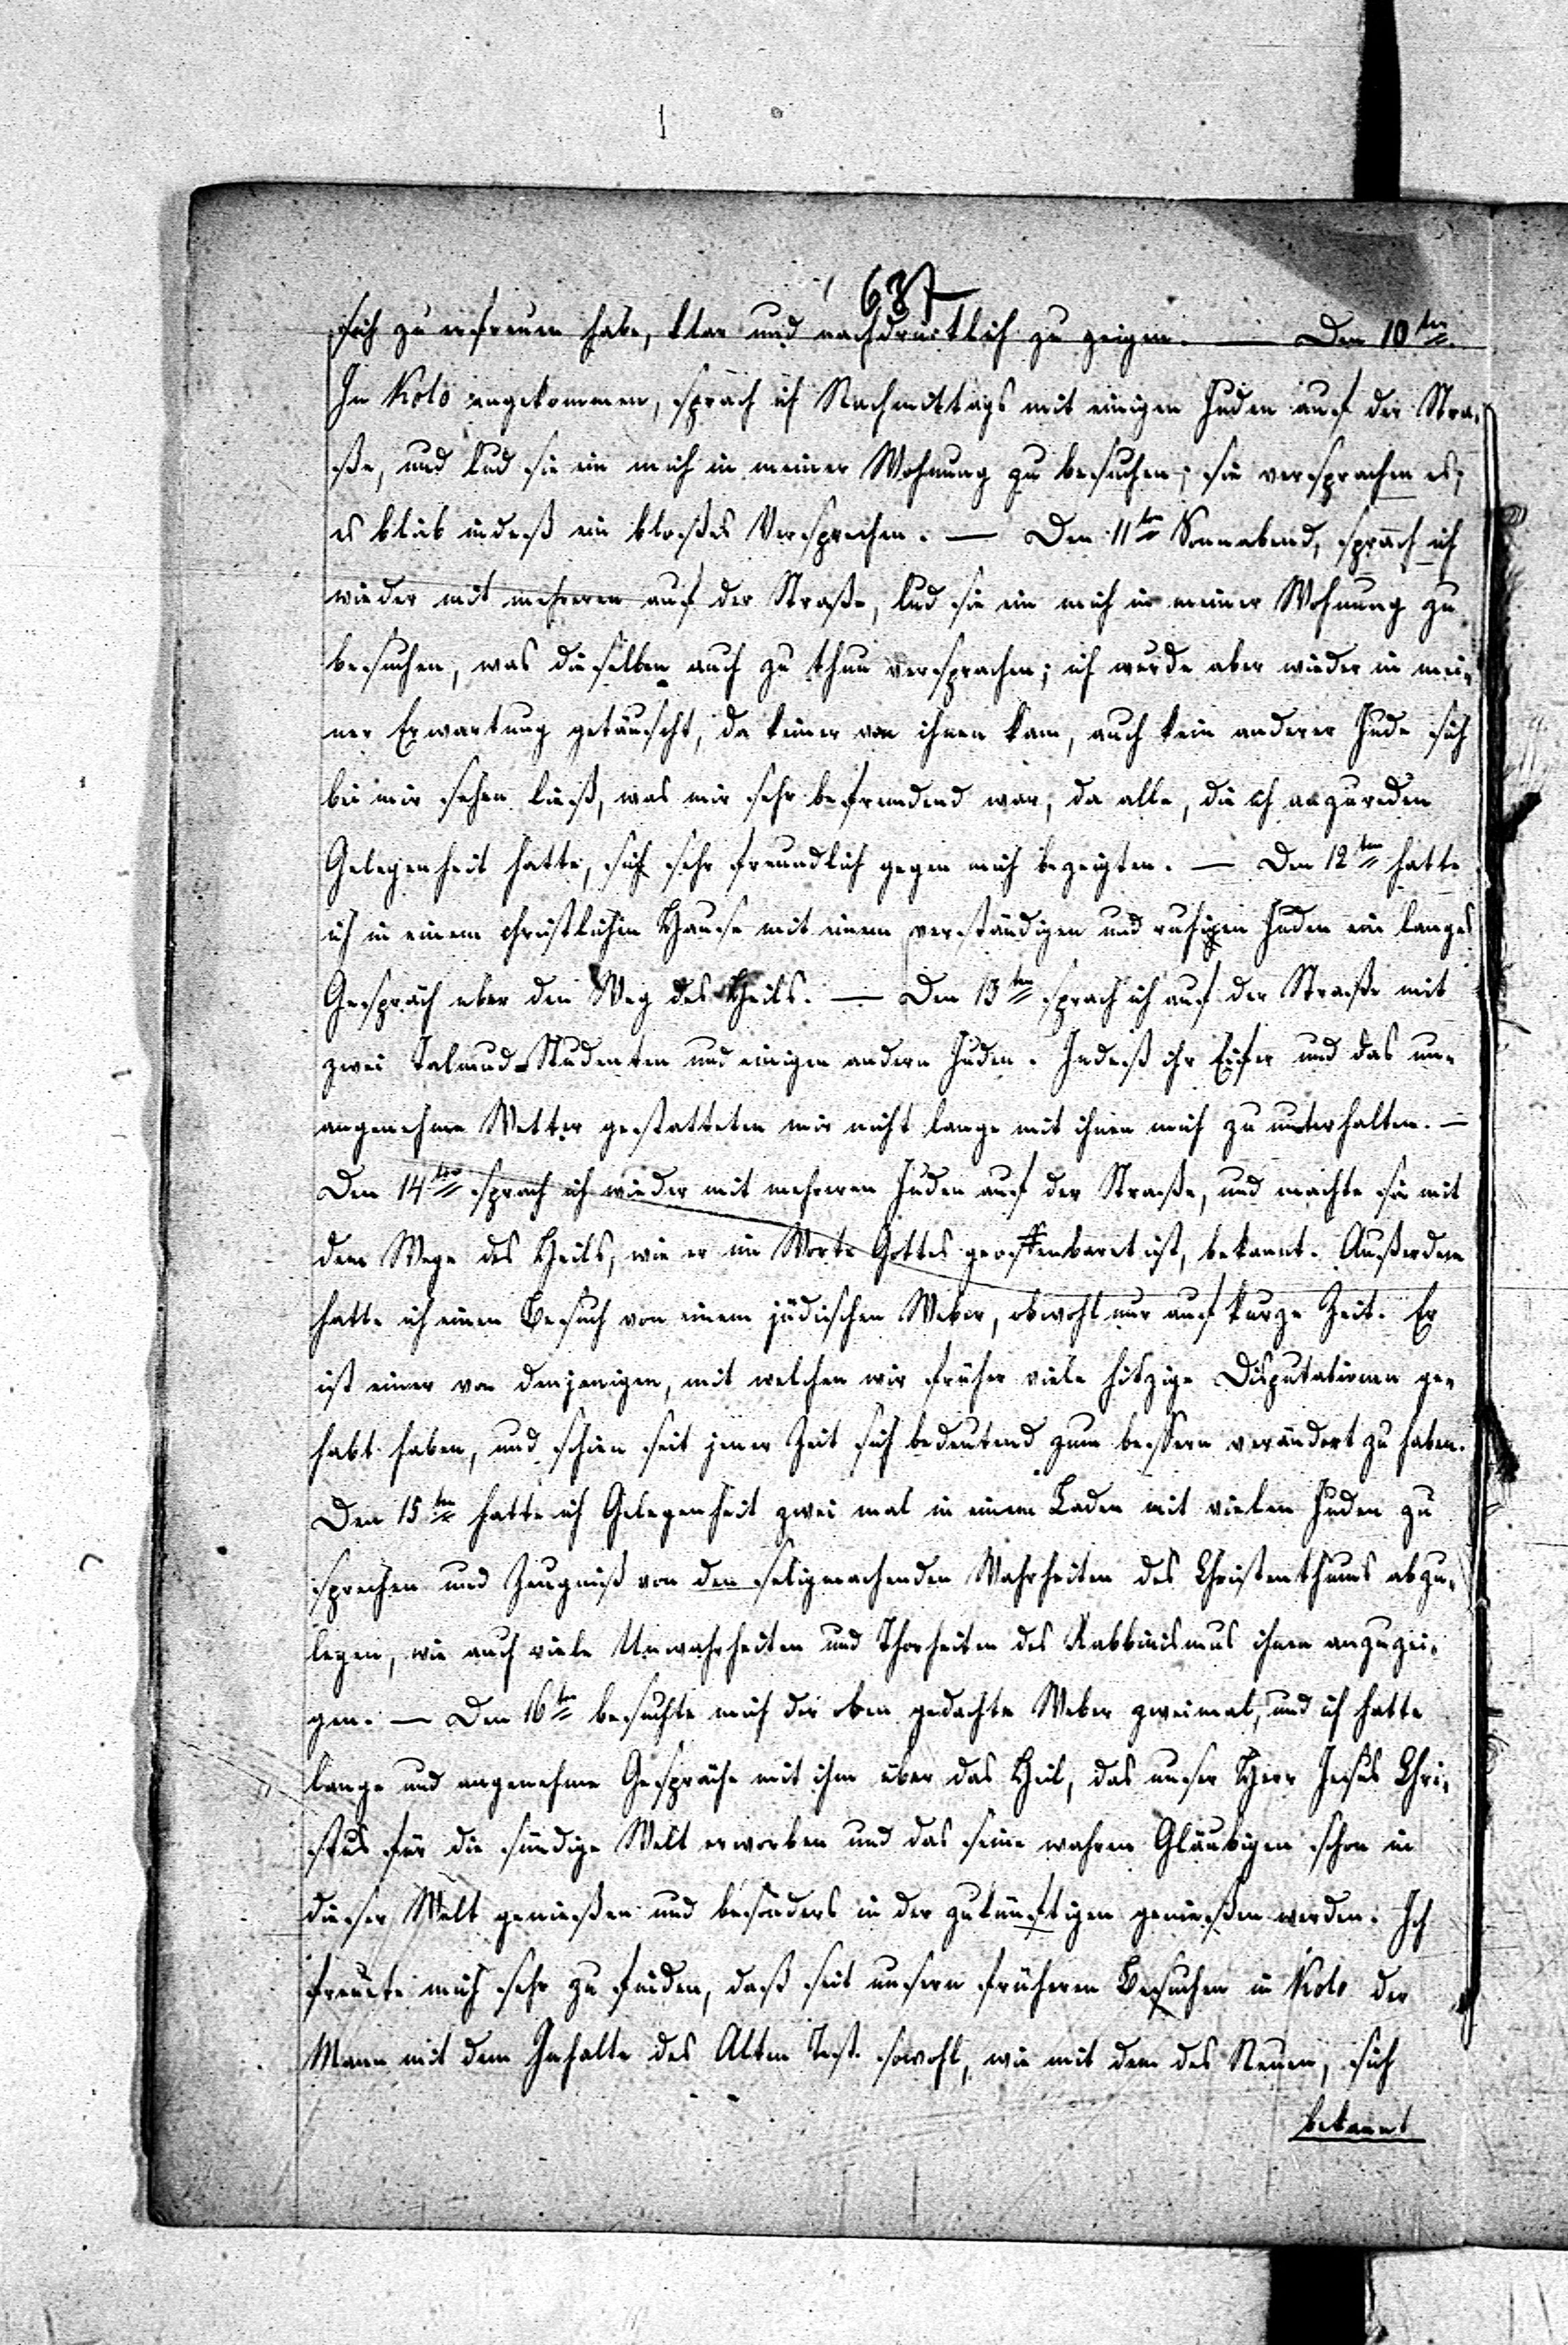 637
sich zu erfreuen habe, klar und nachdrücklich zu zeigen. — Den 10ten.
In Kolo angekommen, sprach ich Nachmittags mit einigen Juden auf der Stra-
ße, und lud sie ein mich in meiner Wohnung zu besuchen; sie versprachen es;
es blieb indeß ein bloßes Versprechen. — Den 11ten Sonnabend, sprach ich
wieder mit mehreren auf der Straße, lud sie ein mich in meiner Wohnung zu
besuchen, was dieselben auch zu thun versprachen; ich wurde aber wieder in mei-
ner Erwartung getäuscht, da keiner von ihnen kam, auch kein anderer Jude sich
bei mir sehen ließ, was mir sehr befremdend war, da alle, die ich anzureden
Gelegenheit hatte, sich sehr freundlich gegen mich bezeigten. — Den 12ten hatte
ich in einem christlichen Hause mit einem verständigen und ruhigen Juden ein langes
Gespräch über den Weg des Heils. — Den 13ten sprach ich auf der Straße mit
zwei Talmud-Studenten und einigen andern Juden. Indeß ihr Eifer und das un-
angenehme Wetter gestatteten mir nicht lange mit ihnen mich zu unterhalten. —
Den 14ten sprach ich wieder mit mehreren Juden auf der Straße, und machte sie mit
dem Wege des Heils, wie er im Worte Gottes geoffenbaret ist, bekannt. Außerdem
hatte ich einen Besuch von einem jüdischen Weber, obwohl nur auf kurze Zeit. Er
ist einer von denjenigen, mit welchen wir früher viele hitzige Disputationen ge-
habt haben, und schien seit jener Zeit sich bedeutend zum bessern verändert zu haben.
Den 15ten hatte ich Gelegenheit zwei mal in einem Laden mit vielen Juden zu
sprechen und Zeugniß von den seligmachenden Wahrheiten des Christenthums abzu-
legen, wie auch viele Unwahrheiten und Thorheiten des Rabbinismus ihnen anzuzei-
gen. — Den 16ten besuchte mich der oben gedachte Weber zweimal, und ich hatte
lange und angenehme Gespräche mit ihm über das Heil, das unser Herr Jesus Chri-
stus für die sündige Welt erworben und das seine wahren Gläubigen schon in
dieser Welt genießen und besonders in der zukünftigen genießen werden. Ich
freuete mich sehr zu finden, daß seit unsern früheren Besuchen in Kolo der
Mann mit dem Inhalte des Alten Test. sowohl, wie mit dem des Neuen, sich
bekannt